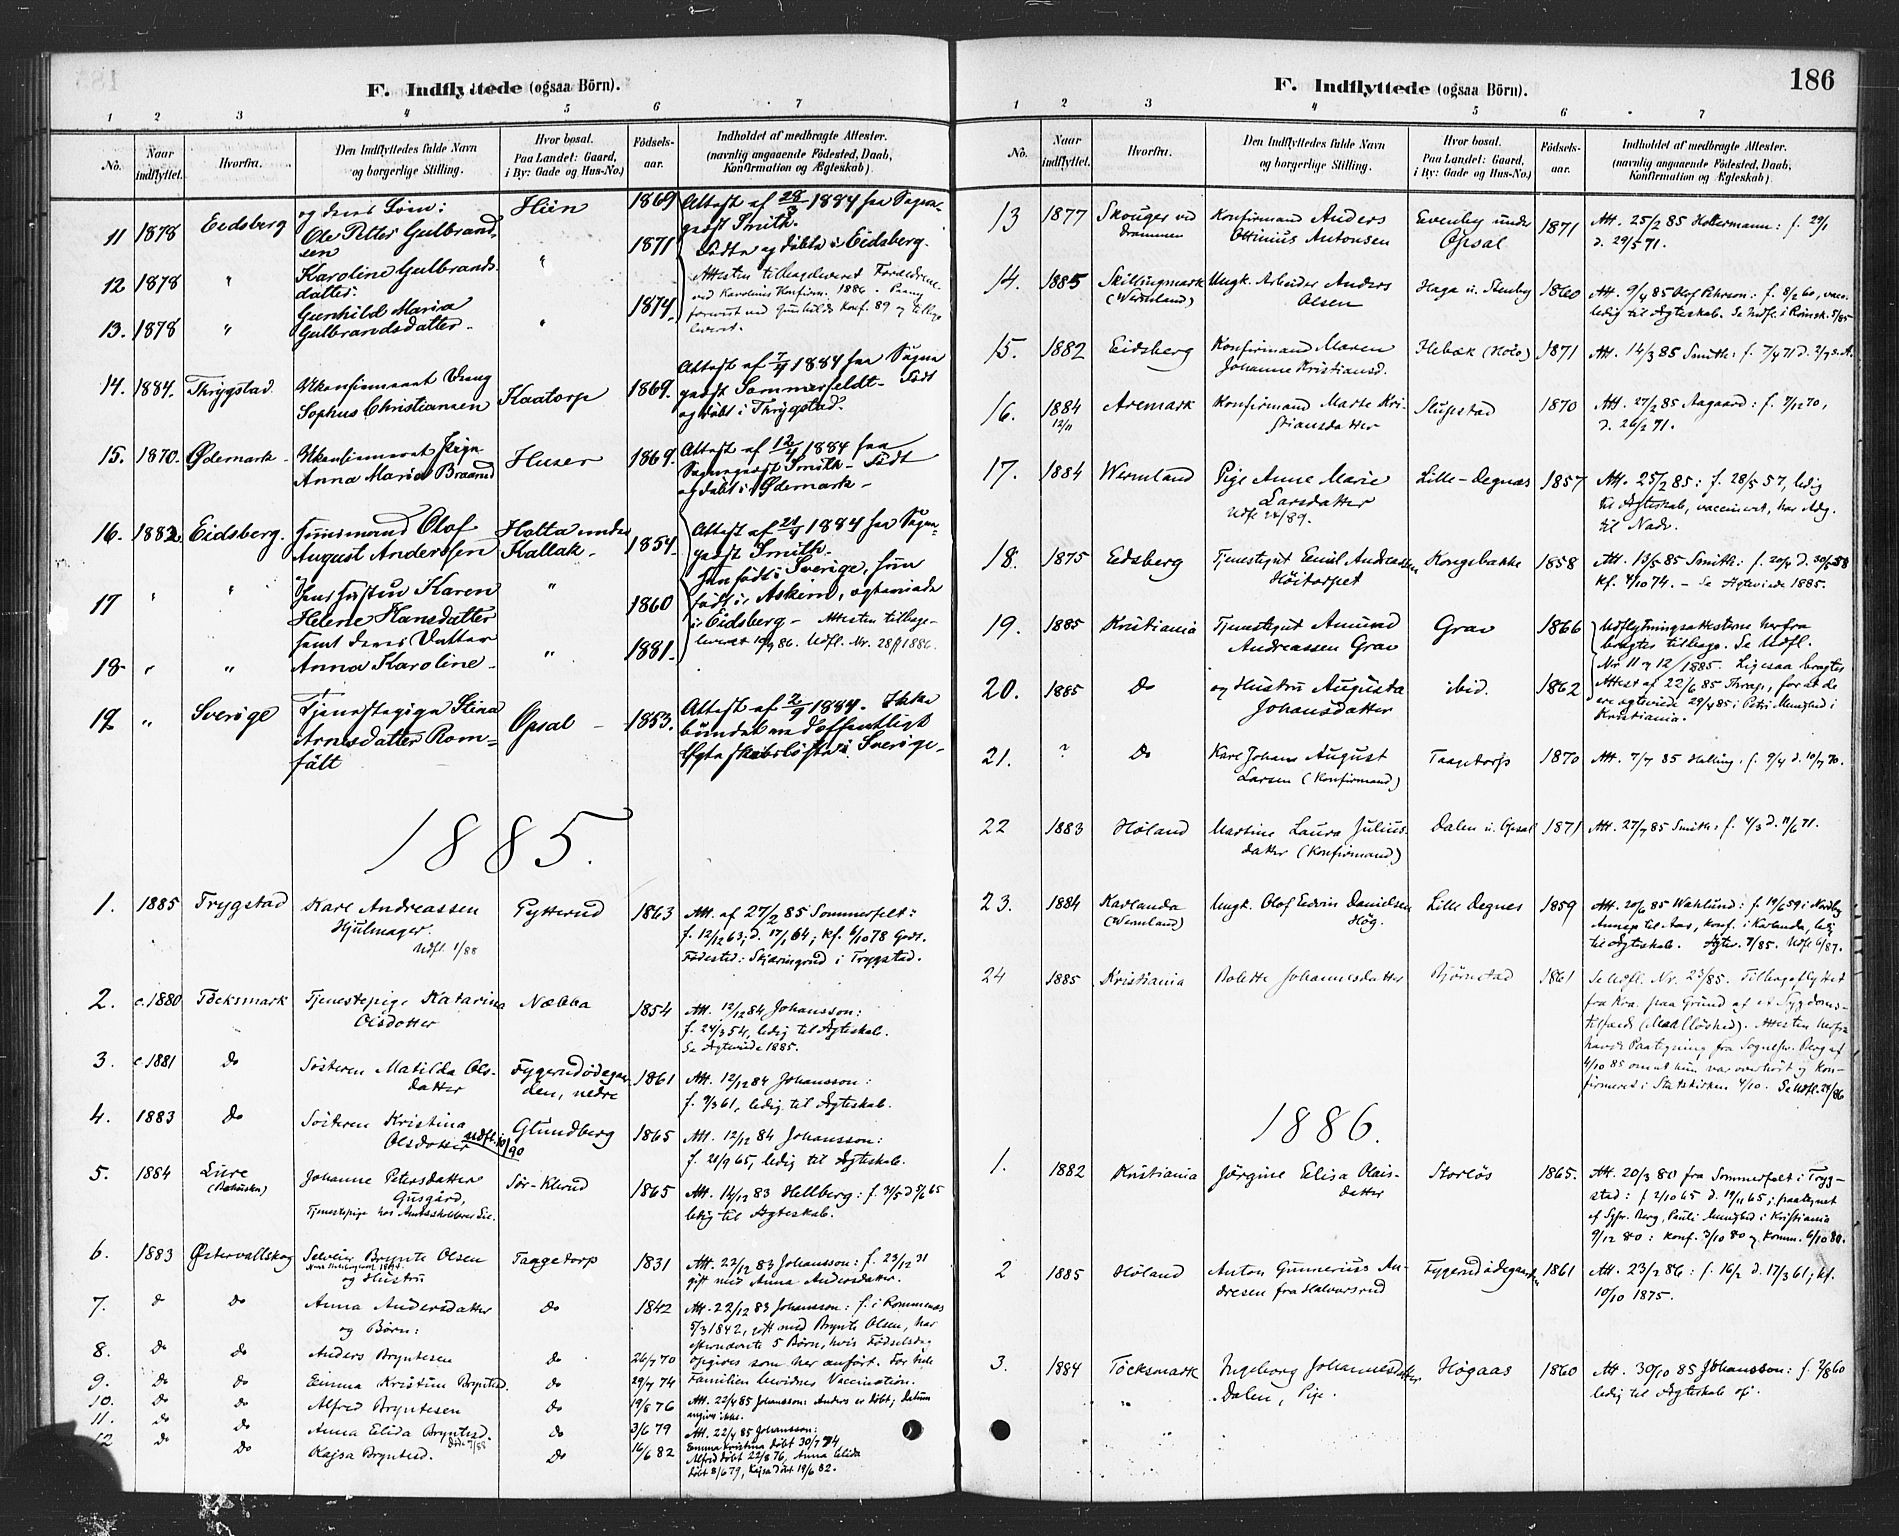 F. Indflyttede (ogsaa Börn).
1 2 3 4 5 6 7
No. Naar indflyttet. Hvorfra. Den Indflyttedes fulde Navn og borgerlige Stilling. Hvor bosat. Paa Landet: Gaard, i By: Gade og Hus-No.) Födsels-aar. Indholdet af medbragte Attester. (navnlig angaaende Födested, Daab, Konfirmation og Ægteskab)
og deres Søn:
11 1878 Eidsberg Ole Petter Gulbrand- Hün 1869 Attest af 28/3 1884 fra Sogne-
sen 1871 præst Smith.
Fødte og døbte i Eidsberg.
12 1878 " Karoline Gulbrands- "
datter. Attesten tilbageleveret Forældrene
ved Karolines Konfirm. 1886.
13. 1878 " Gunhild Maria " 1874.
Gulbrandsdatter. Konf. 89 og tilbage
leveret.
14. 1884. Thrygstad. Ukonfirmeret Dreng Kaatorp 1869. Attest af 7/4 1884 fra Sogne
Sophus Christiansen præst Sommerfeldt - Født
og døbt i Thrygstad.
15. 1870. Ødemark - Ukonfirmeret Pige Huser 1869. Attest af 12/4 1884 fra
Anna Maria Braarud Sognepræst Smith - Født
og døbt i Ødemark -
16. 1882 Eidsberg. Huusmand Olof Holta under 1854. Attest af 21/4 1884 fra Sogne-
August Anderssen Kallak - præst Smith -
Han født i Sverige, hun
17 " " Hans Hustru Karen " 1860 født i Askim, ægteviede
Helene Hansdatter i Eidsberg - Attesten tilbage-
samt deres Datter leveret 86. Udfl. Nr. 28 1886.
18 - " " Anna Karoline - " 1881.
19 " Sverige Tjenestepige Stina Opsal - 1853. Attest af 2/9 1884. Ikke
Arnesdatter Rom- bundet ved offentligt
fält Ægteskabsløfte i Sverige -
1885.
1. 1885 Trygstad Karl Andreassen Gytterud 1863 Att. af 27/2 85 Sommerfelt:
Hjulmager. f. 12/12 63; d. 17/1 64; kf. 6/10 78 Godt.
Udfl. 1/88 Fødested: Skjæringrud i Trygstad.
2. c. 1880 Töcksmark Tjenestepige Katarina Næbba 1854 Att. 12/12 84 Johansson:
Olsdotter f. 24/3 54, ledig til Ægteskab.
Se Ægteviede 1885.
3. c. 1881 do Søsteren Matilda Ols- Fygerudødegaar- 1861 Att. 12/12 84 Johansson:
datter den, nedre f. 9/3 61, ledig til Ægteskab.
4. 1883 do Søsteren Kristina Glundberg 1865 Att. 12/12 84 Johansson:
Olsdotter Udfl. 10/90 f. 21/9 65, ledig til Ægteskab.
5. 1884 Lure Johanne Petersdatter Sør-Klerud 1865 Att. 14/12 83 Hellberg: f. 3/5 d. 5/6 65
(Bahuslen) Gusgård, ledig til Ægteskab.
Tjenestepige hos
6. 1883 Østervallskog Selveier Brynte Olsen Taagetorp 1831 Att. 22/12 83 Johansson: f. 23/12 31
og Hustru gift med Anna Andersdatter.
7. do do Anna Andersdatter do 1842 Att. 22/12 83 Johansson: f. i Rommenæs
og Børn: 5/3 1842, gift med Brynte Olsen, har
efternævnte 5 Børn, hvis Fødselsdag
8. do do Anders Bryntesen do 26/7 70 opgives som her anført. For hele
9. do do Emma Kristine Bryntesd. do 29/7 74 Familien bevidnes Vaccination.
10. do do Alfred Bryntesen do 19/8 76 Att. 22/4 85 Johansson: Anders er døbt; datum
angives ikke.
11. do do Anna Elida Bryntesd. do 3/6 79 Att. 22/4 85 Johansson:
Død 7/88 Emma Kristina døbt 30/7 74
12 do do Kajsa Bryntesd. do 16/6 82 Alfred døbt 22/8 76, Anna Elida
døbt 8/6 79, Kajsa døbt 19/6 82.
186
F. Indflyttede (ogsaa Börn).
1 2 3 4 5 6 7
No. Naar indflyttet. Hvorfra. Den Indflyttedes fulde Navn og borgerlige Stilling. Hvor bosat. Paa Landet: Gaard, i By: Gade og Hus-No.) Födsels-aar. Indholdet af medbragte Attester. (navnlig angaaende Födested, Daab, Konfirmation og Ægteskab)
13 1877 Skouger ved Konfirmand Anders Evenby under 1871 Att. 25/2 85 Holtermann: f. 29/1
Drammen Ottinius Antonsen Opsal d. 29/5 71.
14. 1885 Skillingmark Ungk. Arbeider Anders Haga u. Stenby 1860 Att. 9/4 85 Olof Pehrson: f. 8/2 60, vacc.
(Wermland) Olsen ledig til Ægteskab. Se Udfl. i Rømsk. 5/85
15. 1882 Eidsberg Konfirmand Maren Hebæk (Nolo) 1871 Att. 14/3 85 Smith: f. 7/4 71 d. 2/7 s.A.
Johanne Kristiansd.
16. 1884 Aremark Konfirmand Marte Kri- Slupstad 1870 Att. 27/2 85 Aagaard: f. 7/12 70,
12/11 stiansdatter d. 26/2 71.
17. 1884 Wermland Pige Anne Marie Lille-Degnæs 1857 Att. 25/2 85: f. 28/5 57, ledig
Larsdatter til Ægteskab, vaccineret, har Adg.
Udfl. 24/89. til Nadv.
18. 1875 Edsberg Tjenestegut Emil Andreassen Kongsbakke 1858 Att. 13/5 85 Smith: f. 20/4 d. 30/5 58
Høitorpet kf. 4/10 74. - Se Ægteviede 1885.
19. 1885 Kristiania Tjenestegut Amund Grav 1866 Udflytningsattesterne herfra
Andreassen Grav bragtes tilbage. Se Udfl.
Nr. 11 og 12/1885. Ligesaa bragtes
20. 1885 do og Hustru Augusta ibid. 1862 Attest af 22/6 85 Thrap, for at de
Johansdatter ere ægteviede 29/4 85 i Petri Menighed i
Kristiania.
21. ? do Karl Johans August Taagetorp 1870 Att. 7/7 85 Halling. f. 9/4 d. 10/7 70.
Larsen (Konfirmand)
22 1883 Høland Martine Laura Julius- Dalen u. Opsal 1871 Att. 27/7 85 Smith: f. 4/3 d. 11/6 71.
datter (Konfirmand)
23. 1884 Karlanda Ungk. Olof Edvin Danielsen Lille Degnes 1859 Att. 20/6 85 Wahlund: f. 19/6 59 i Nordby
(Wermland) Høg. Annex til Aas, konf. i Karlanda, ledig
til Ægteskab. Ægtev. 7/85. Udfl 6/87.
24 1885 Kristiania Bolette Johannesdatter Bjørnstad 1861 Se Udfl. Nr. 23/85. Tilbageflyttet
fra Kra. paa Grund af et Sygdoms-
tilfælde (Mælkløshed). Attesten herfra
havde Paategning fra Sognepr. Berg af
4/10 85 om at hun var overhørt og kon-
firmeret i Statskirken 4/10. Se Udfl. 24/86
1886.
1. 1882 Kristiania Jørgine Elisa Olais- Storløs 1865. Att. 20/3 80 fra Sommerfelt i Tryg-
datter stad: f. 2/10 65 d. 19/11 65; paategnet
af Sgpr. Berg, Pauli Menighed i Kristiania
9/12 80: konf. 3/10 80 og Komm. 6/10 80.
2 1885 Høland Anton Gunnerius An- Fygerudødegaarden 1861 Att. 23/2 86: f. 16/2 d. 17/3 61; kf.
dresen fra Halvorsrud 10/10 1875.
3. 1884 Töcksmark Ingeborg Johannesdatter Høgaas 1860 Att. 30/10 85 Johansson: f. 2/8 60
" Dalen, Pige ledig til Ægteskab